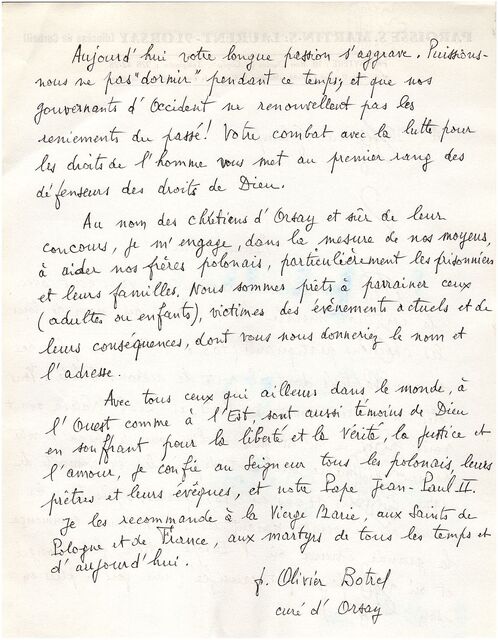 Aujourd'hui votre longue passion s'aggrave. Puissions-
nous ne pas "dormir" pendant ce temps, et que nos
gouvernants d'Occident ne renouvellent pas les
reniements du passé! Votre combat avec la lutte pour
les droits de l'homme vous met au premier rang des
défenseurs des droits de Dieu.
Au nom des chrétiens d'Orsay et sûr de leur
concours, je m'engage, dans la mesure de nos moyens,
à aider nos frères polonais, particulièrement les prisonniers
et leurs familles. Nous sommes prêts à parrainer ceux
(adultes ou enfants), victimes des évènements actuels et de
leurs conséquences, dont vous nous donneriez le nom et
l'adresse.
Avec tous ceux qui ailleurs dans le monde, à
l'Ouest comme à l'Est, sont aussi témoins de Dieu
en souffrant pour la liberté et la Vérité, la justice et
l'amour, je confie au Seigneur tous les polonais, leurs
prêtres et leurs évêques, et notre Pape Jean-Paul II.
Je les recommande à la Vierge Marie, aux Saints de
Pologne et de France, aux martyrs de tous les temps et
d'aujourd'hui.
p. Olivier Botrel
curé d'Orsay